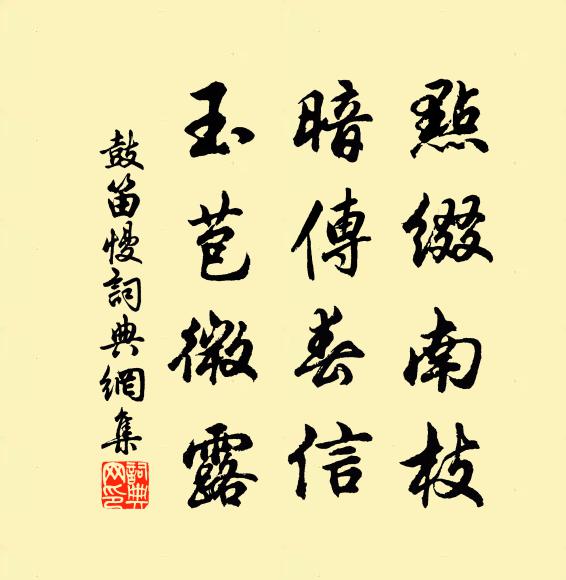 點綴南枝
暗傳春信
玉苞微露
鼓笛慢詞典網集
詞典網印